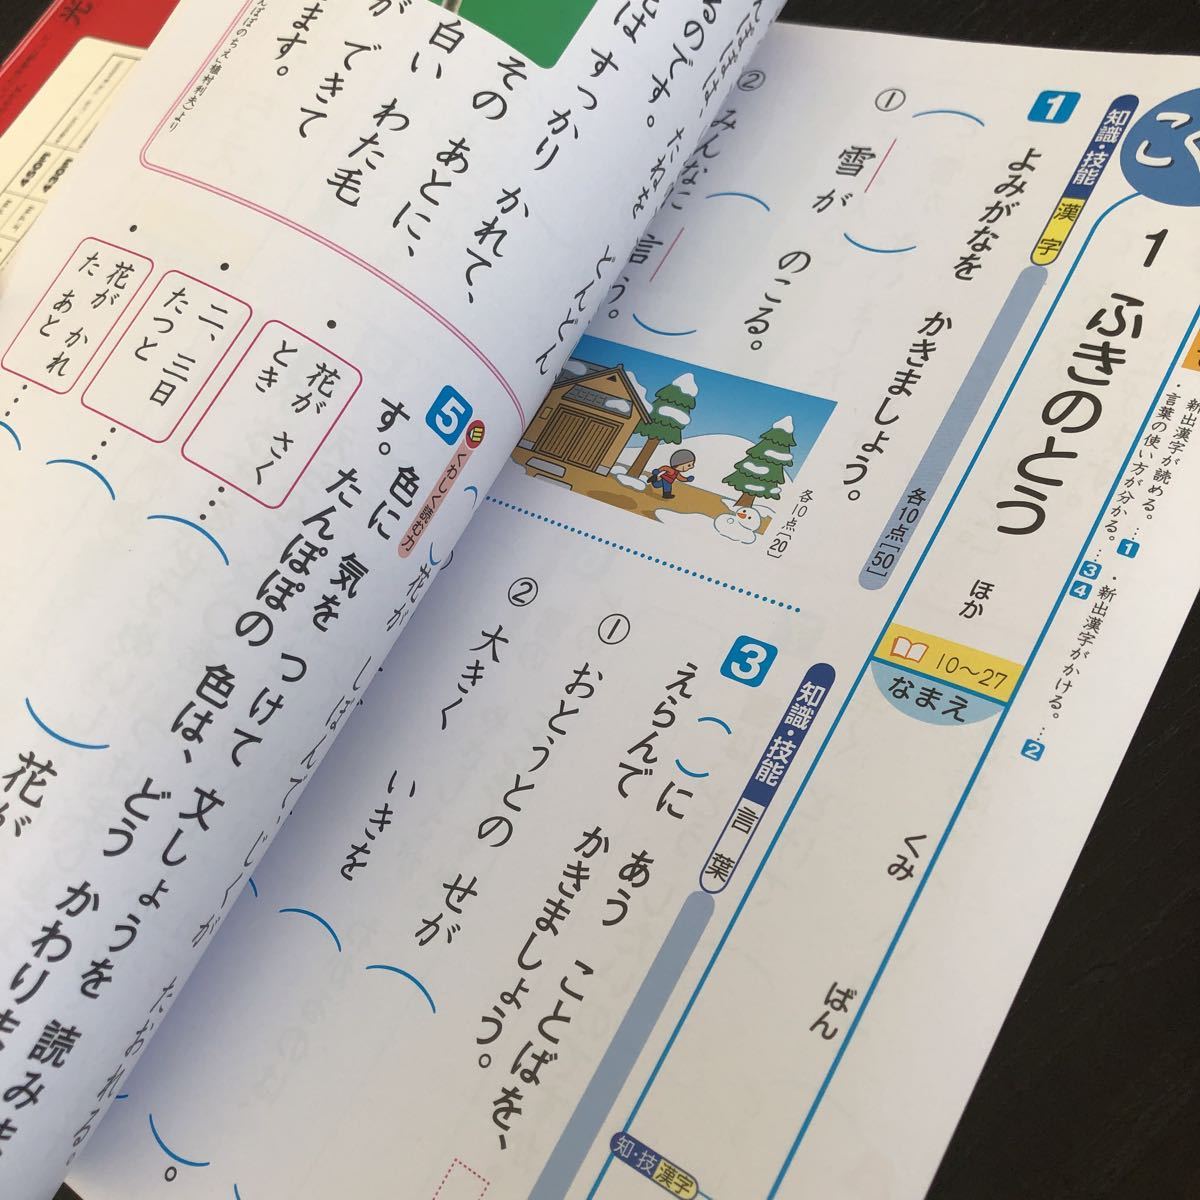 こく
1 ふきのとう ほか
10~27
なまえ
くみ
ばん
・新出漢字が読める。…1
・言葉の使い方が分かる。…3 4
・新出漢字がかける。…2
1
知識・技能 漢字
よみがなを かきましょう。
各10点[50]
①
雪が のこる。
②
みんなに 言う。
各10点[20]
3
知識・技能 言葉
( )に あう ことばを、
えらんで かきましょう。
①
おとうとの せが
②
大きく いきを
知・技 漢字
るのです。
はすっかり かれて、
その あとに、
白い わた毛
が できて
ます。
んぽぽのちえ」植村利夫より
どんどん
花が さく
とき
二、三日
たつと
花が かれ
た あと
5
くわしく読む力
色に 気を つけて 文しょうを 読みま
す。 たんぽぽの 色は、どう かわりま
花が しぼんで、じくが たおれる。
花が